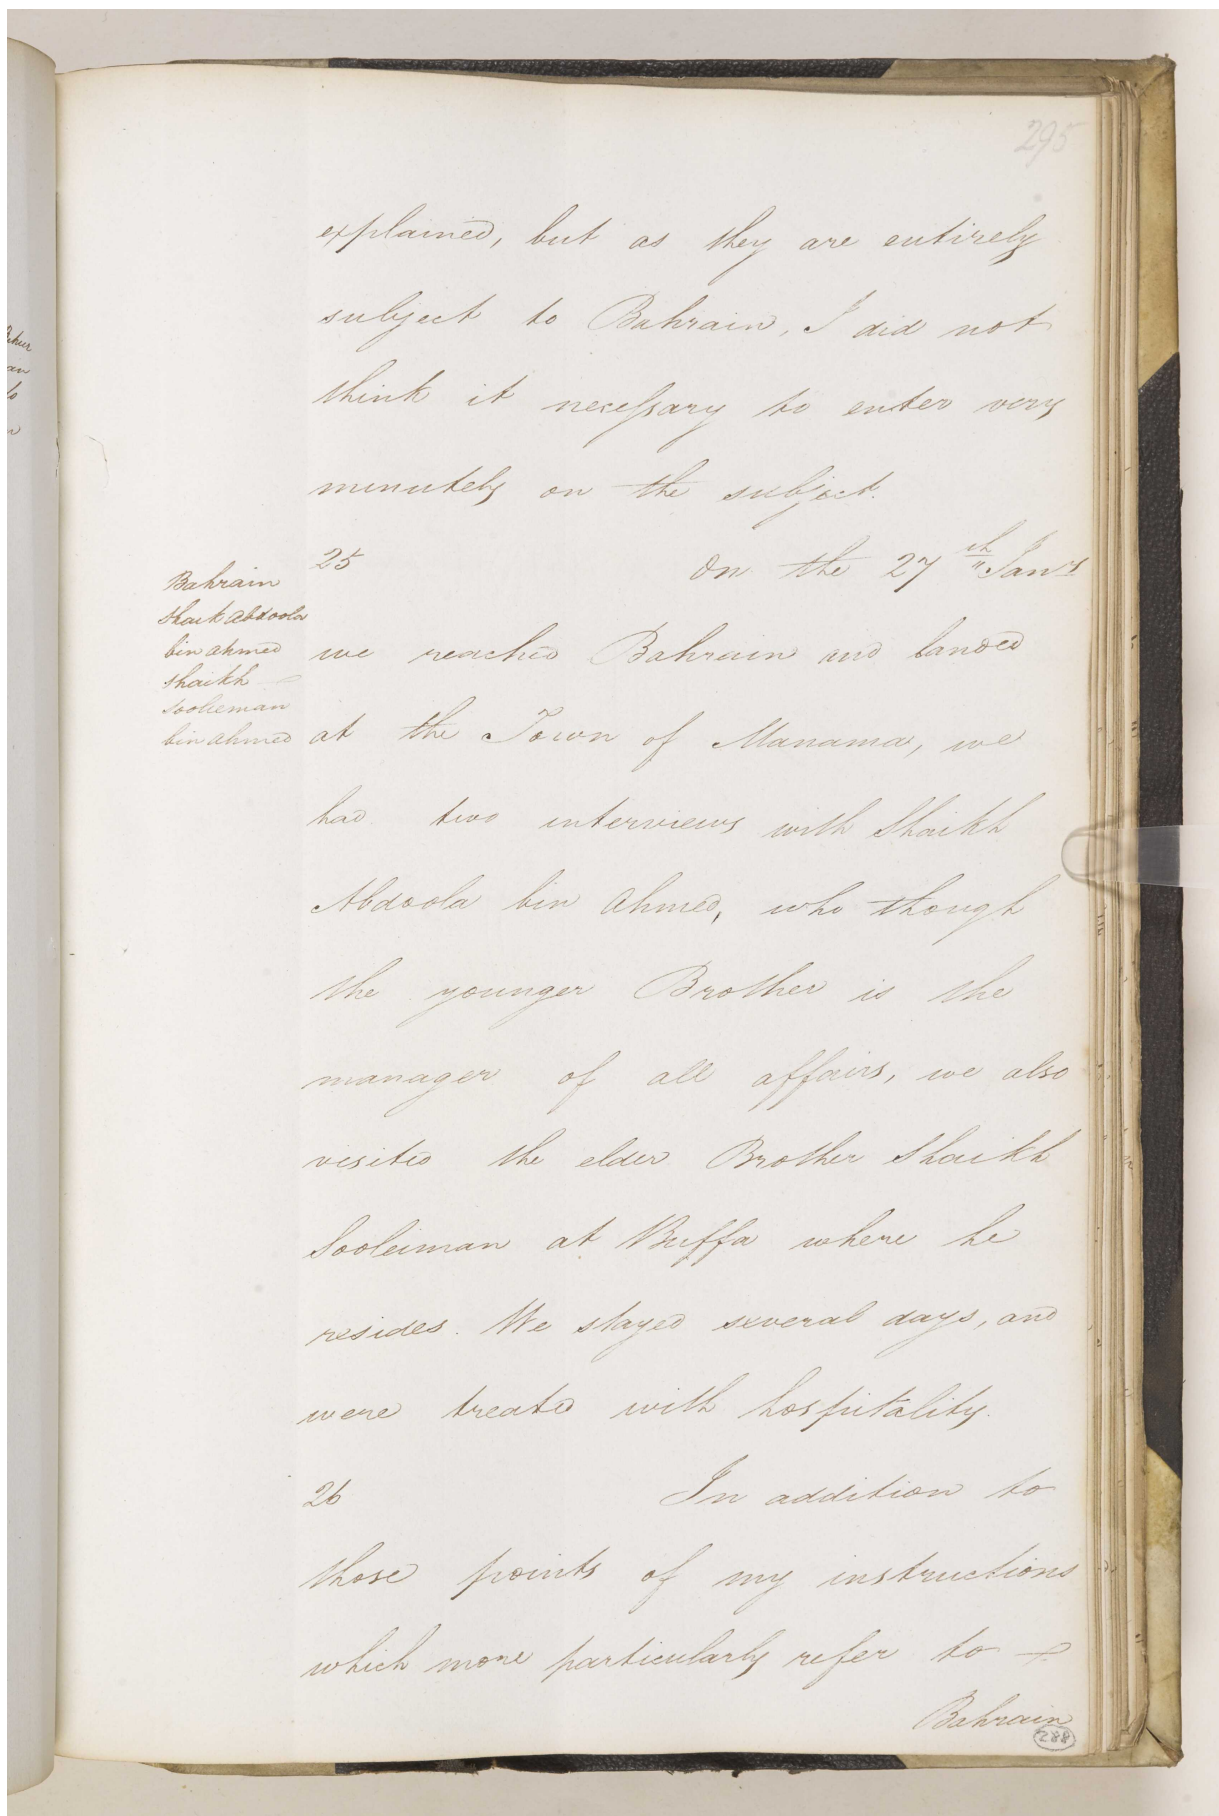 295
explained, but as they are entirely
subject to Bahrain, I did not
think it necessary to enter very
minutely on the subject.
25 On the 27th Jany
Bahrain
Shaik Abdoola
bin Ahmed
Shaikh
Sooleeman
bin Ahmed
we reached Bahrain and landed
at the Town of Manama, we
had two interviews with Shaikh
Abdoola bin Ahmed, who though
the younger Brother is the
manager of all affairs, we also
visited the elder Brother Shaikh
Sooleiman at Ruffa where he
resides. We stayed several days, and
were treated with hospitality.
26 In addition to
those points of my instructions
which more particularly refer to
Bahrain
288